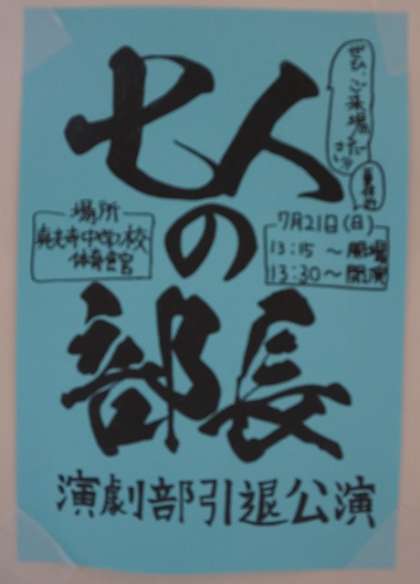 七人
の
部長
ぜひ、ご来場
ください
場所
中学校
体育館
7月21日(日)
13:15 ～ 開場
13:30 ～ 開演
演劇部引退公演